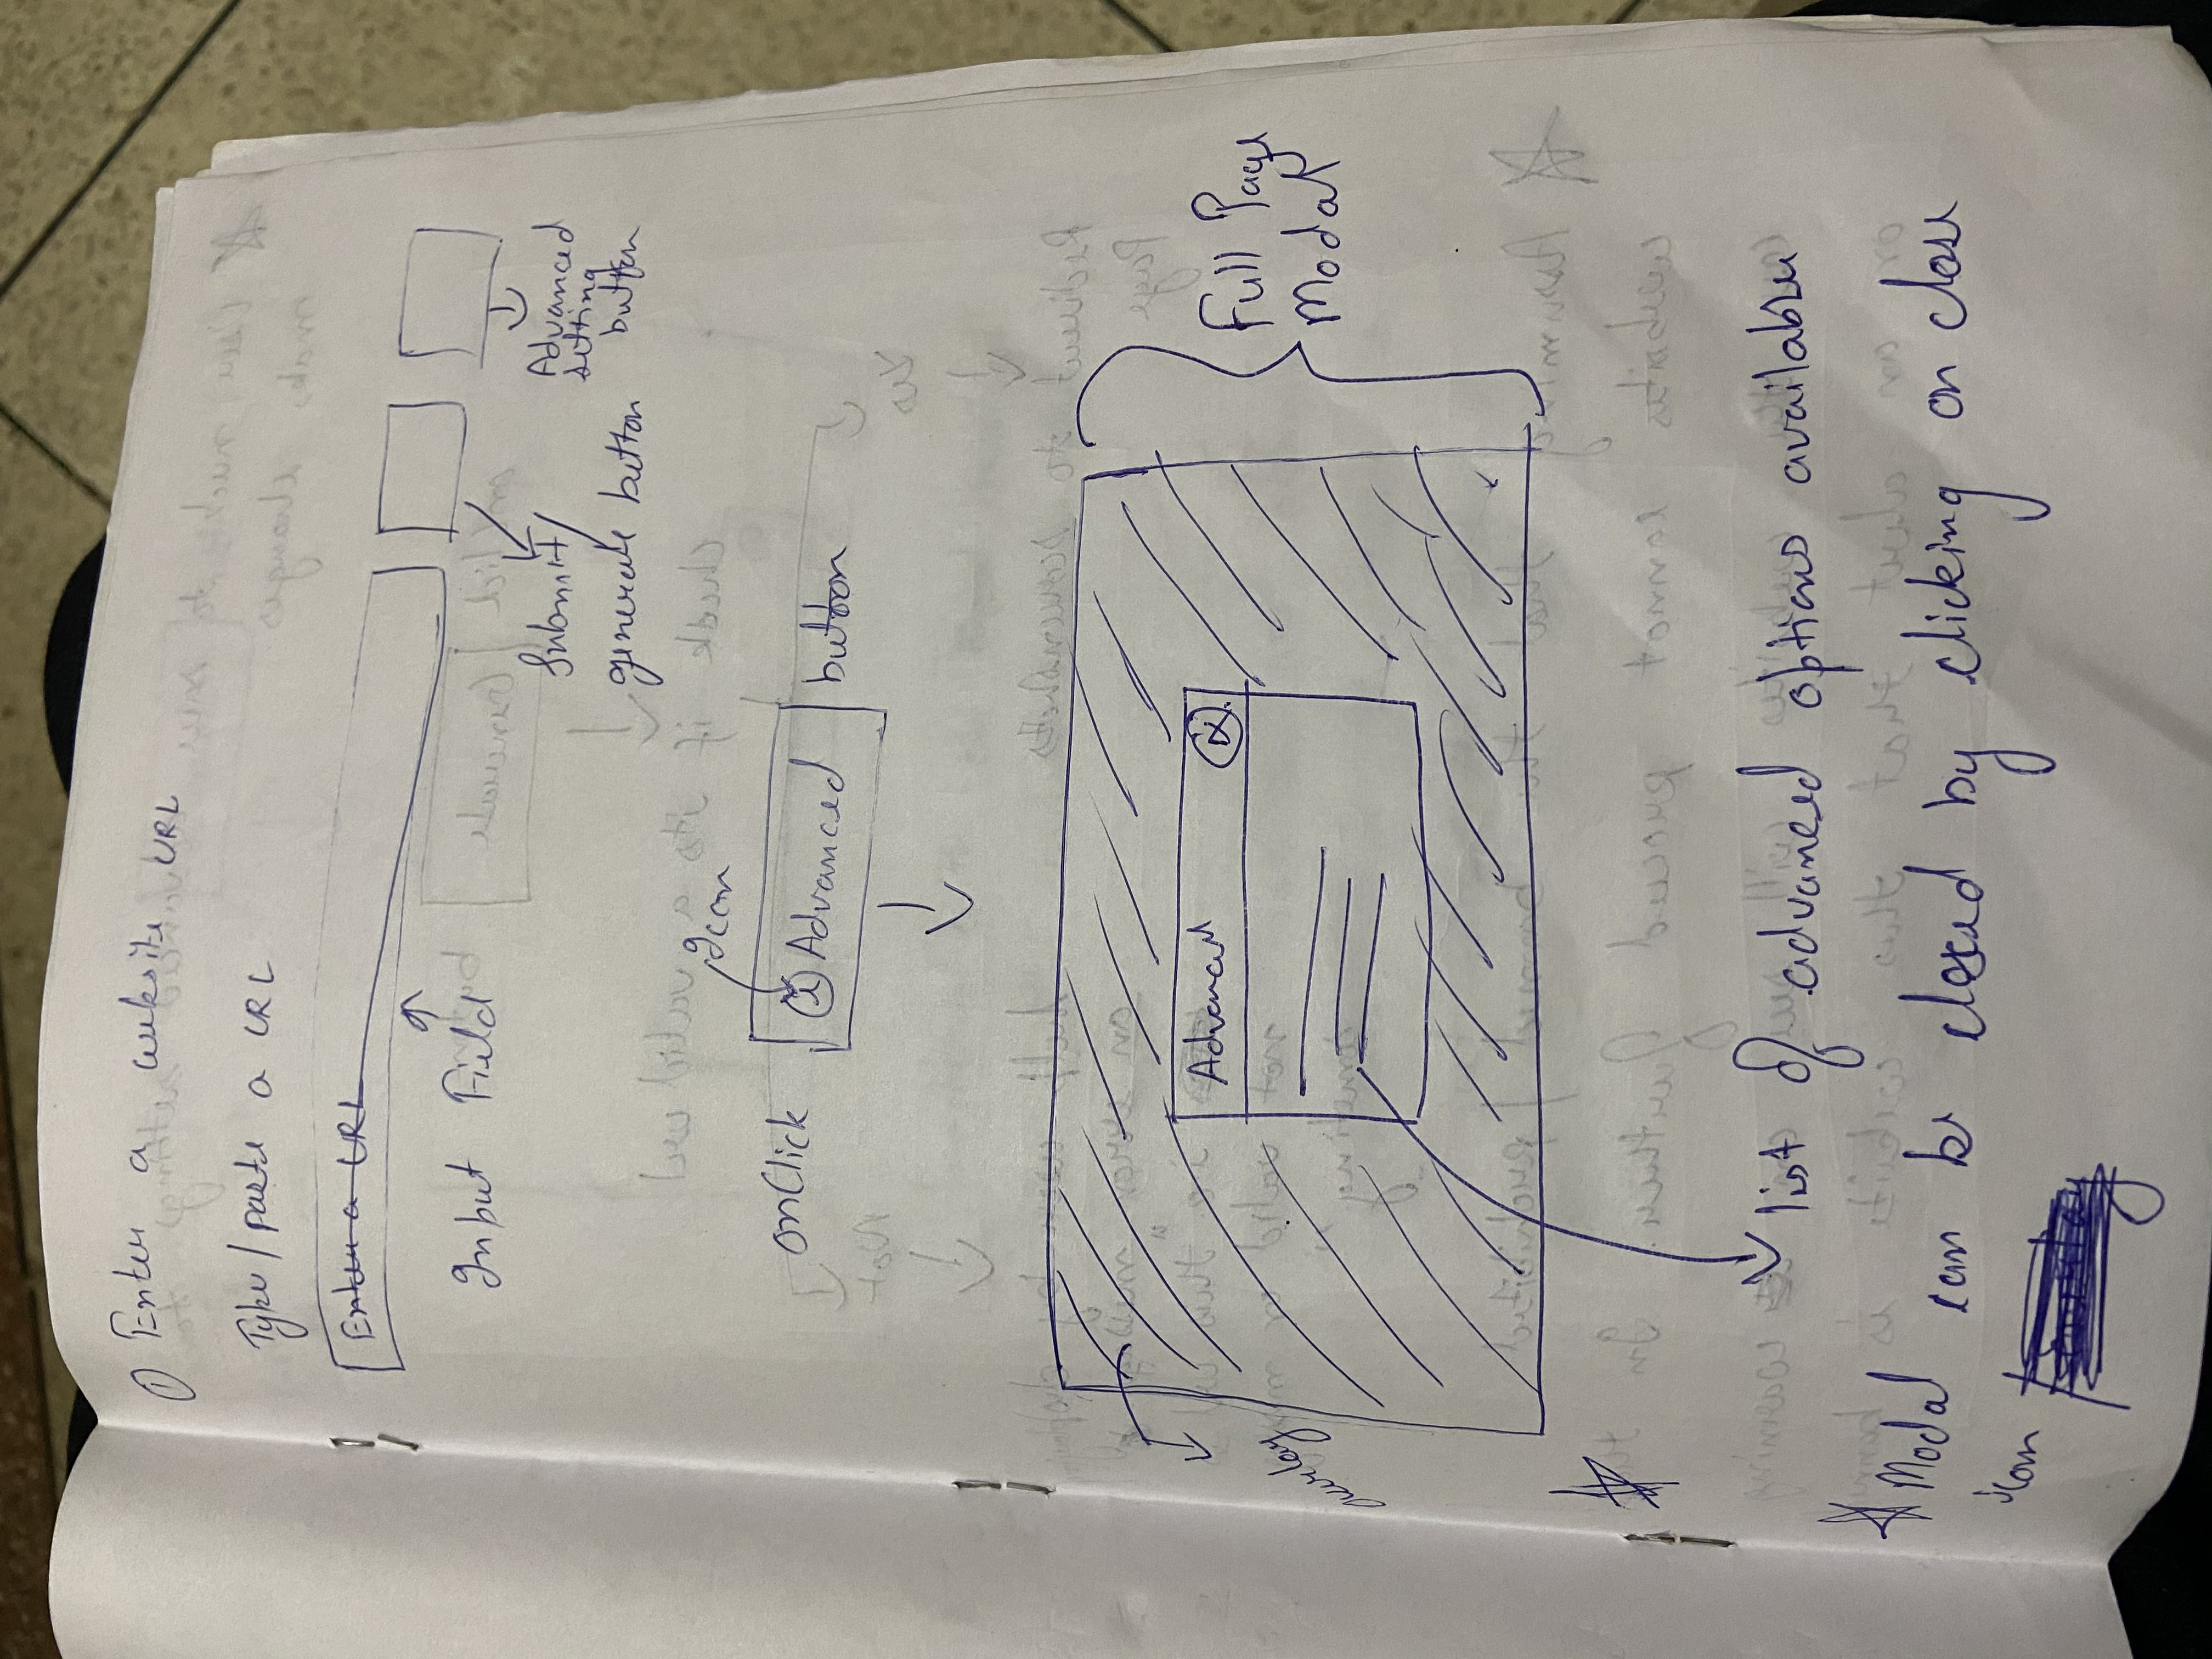 ① Enter a website URL
Type/paste a URL
Enter a URL
Input Field
Submit/
generate button
Advanced
setting
button
Icon
onClick
i Advanced
button
overlay
Advanced
X
Full Page
Modal
list of advanced options available
Modal can be closed by clicking on close
icon / overlay